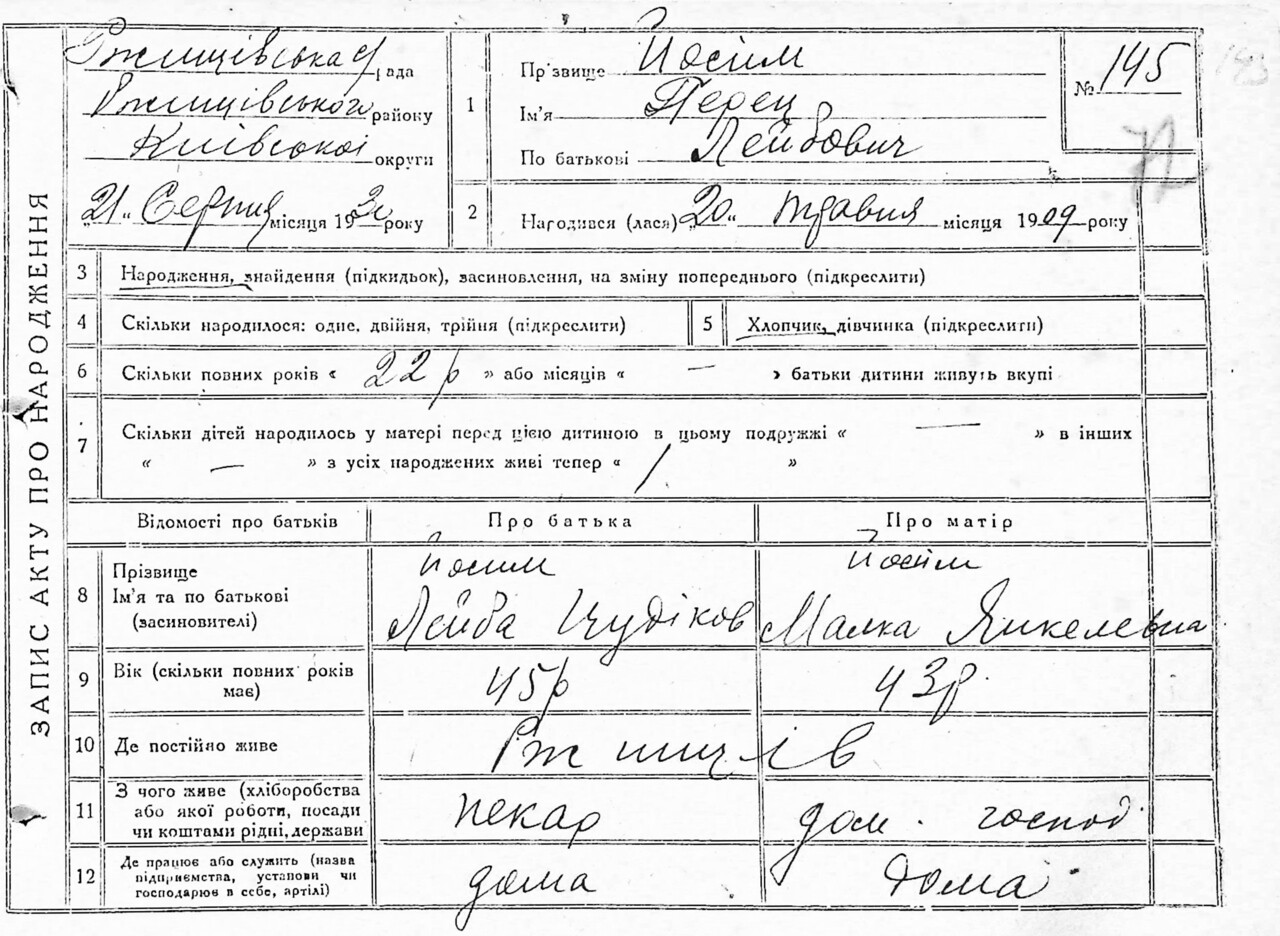 ЗАПИС АКТУ ПРО НАРОДЖЕННЯ
Ржищівська рада
Ржищівського району
Київської округи
„21“ Серпня місяця 1930 року
1
Пр'звище Йосім
Ім'я Перец
По батькові Лейбович
№ 145
2
Нагодився (лася) „20“ травня місяця 1909 року
3 Народження, знайдення (підкидьок), засиновлення, на зміну попереднього (підкреслити)
4 Скільки народилося: одне, двійня, трійня (підкреслити)
5 Хлопчик, дівчинка (підкреслити)
6 Скільки повних років « 22 р » або місяців « — » батьки дитини живуть вкупі
7 Скільки дітей народилось у матері перед цією дитиною в цьому подружжі « — » в інших
« — » з усіх народжених живі тепер « 1 »
Відомості про батьків Про батька Про матір
8 Прізвище
Ім'я та по батькові
(засиновителі)
Йосим
Лейба Цудіков
Йосім
Малка Янкелевна
9 Вік (скільки повних років
має)
45р 43р.
10 Де постійно живе Ржищів
11 З чого живе (хліборобства
або якої роботи, посади
чи коштами рідні, держави
пекар дом. господ
12 Де працює або служить (назва
підприємства, установи чи
господарює в себе, артілі)
дома дома